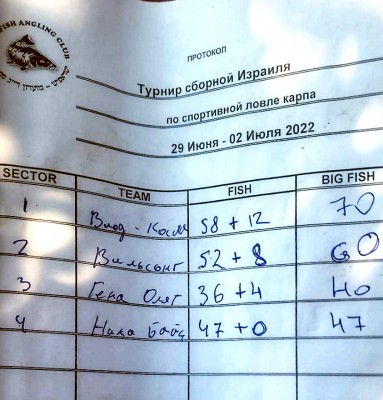 FISH ANGLING CLUB
ПРОТОКОЛ
Турнир сборной Израиля
по спортивной ловле карпа
29 Июня - 02 Июля 2022
SECTOR TEAM FISH BIG FISH
1 Влад - 58 + 12 70
2 52 + 8 60
3 Гена Олег 36 + 4 40
4 47 + 0 47